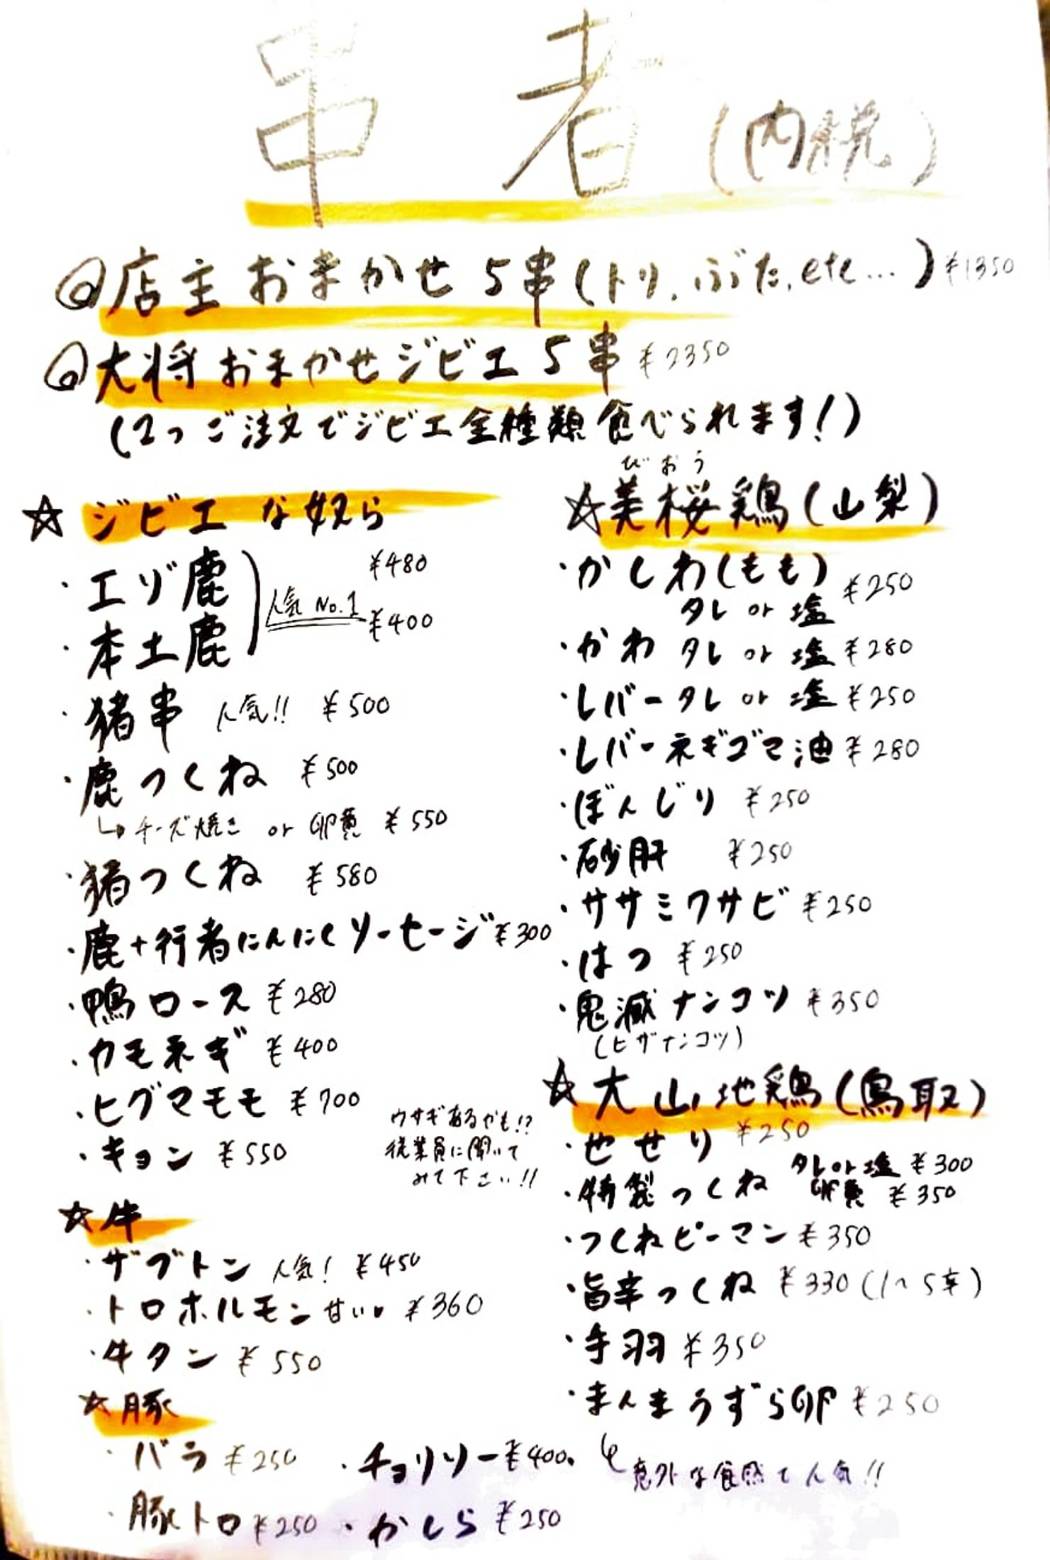 串者(内税)
◎店主おまかせ5串(トリ,ぶた,etc...)¥1350
◎大将おまかせジビエ5串 ¥2350
(2つご注文でジビエ全種類食べられます!)
☆ジビエな奴ら
・エゾ鹿 ¥480
人気No.1
・本土鹿 ¥400
・猪串 人気!! ¥500
・鹿つくね ¥500
↳チーズ焼き or 卵黄 ¥550
・猪つくね ¥580
・鹿+行者にんにくソーセージ¥300
・鴨ロース ¥280
・カモネギ ¥400
・ヒグマモモ ¥700
・キョン ¥550
ウサギあるかも!?
従業員に聞いて
みて下さい!!
☆牛
・ザブトン 人気! ¥450
・トロホルモン 甘い ¥360
・牛タン ¥550
☆豚
・バラ ¥250
・チョリソー¥400
・豚トロ ¥250
・かしら ¥250
びおう
☆美桜鶏(山梨)
・かしわ(もも) ¥250
タレ or 塩
・かわ タレ or 塩 ¥280
・レバータレ or 塩 ¥250
・レバーネギゴマ油 ¥280
・ぼんじり ¥250
・砂肝 ¥250
・ササミワサビ ¥250
・はつ ¥250
・鬼滅ナンコツ ¥350
(ヒザナンコツ)
☆大山地鶏(鳥取)
・せせり ¥250
・特製つくね タレor塩 ¥300
卵黄 ¥350
・つくねピーマン ¥350
・旨辛つくね ¥330(1〜5辛)
・手羽 ¥350
・まんまうずら卵 ¥250
↳意外な食感で人気!!